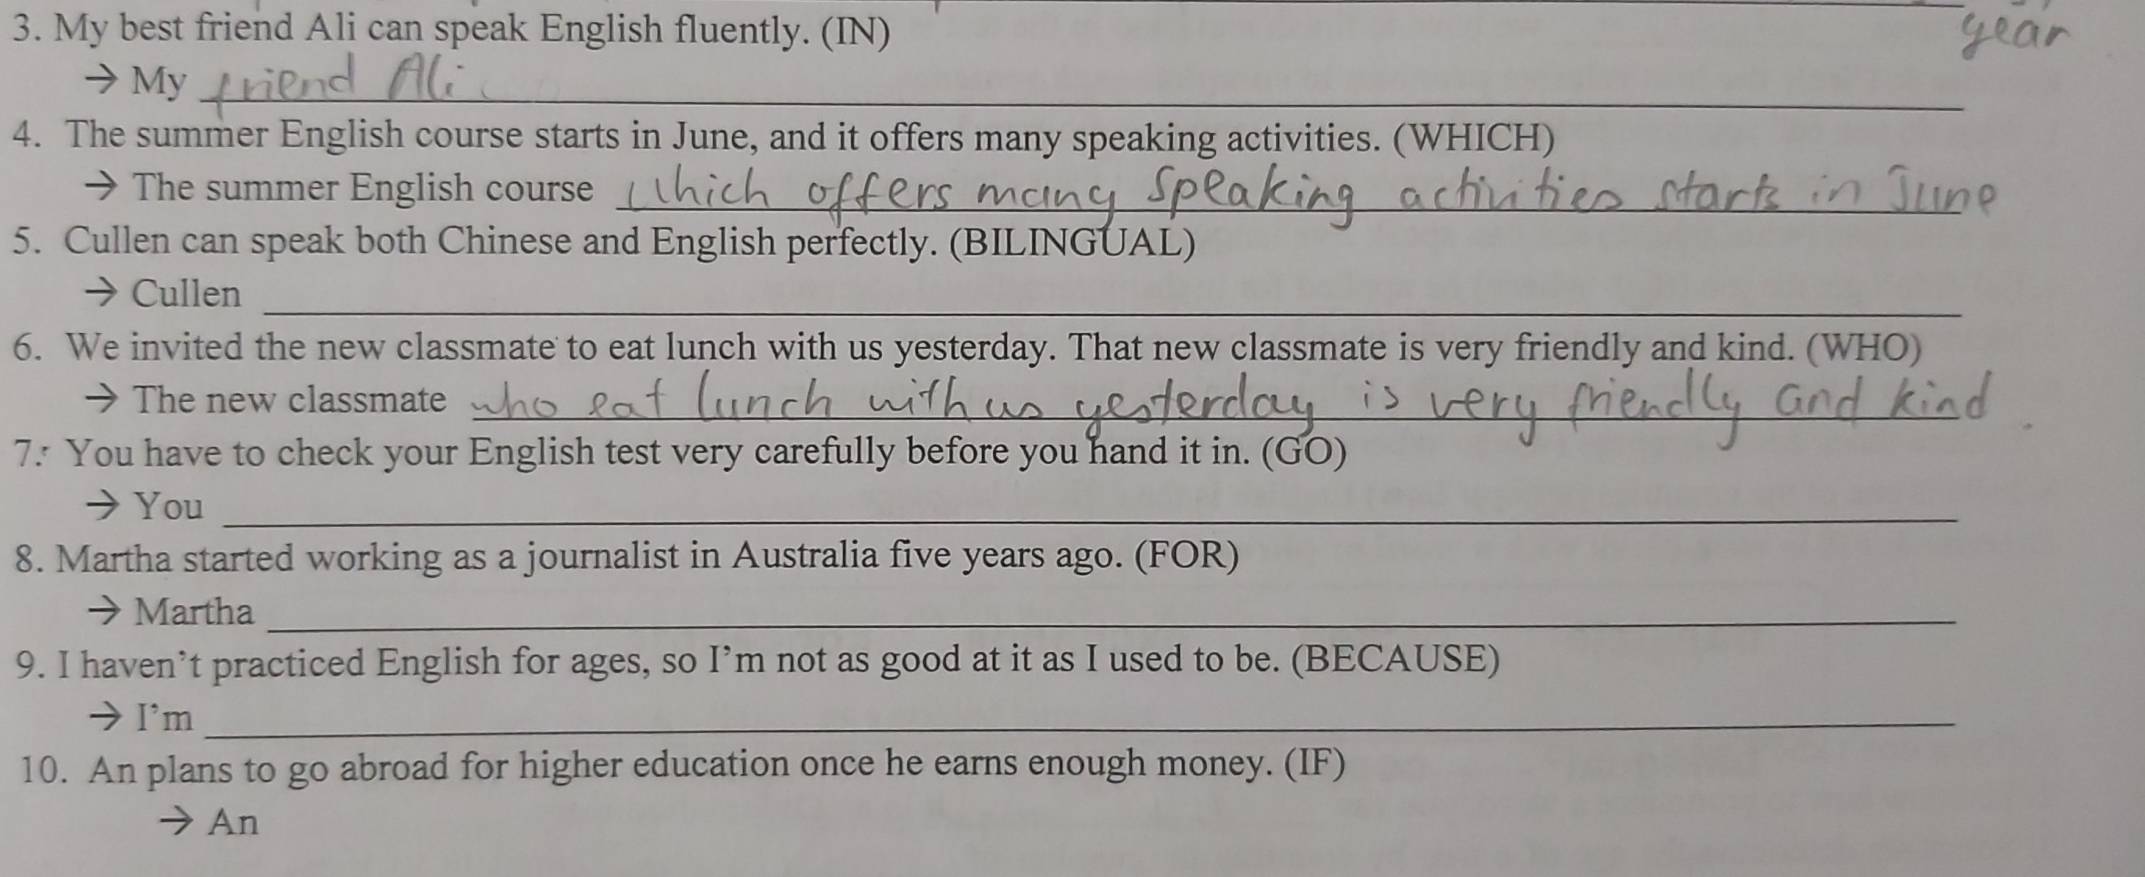 year
3. My best friend Ali can speak English fluently. (IN)
→ My friend Ali
4. The summer English course starts in June, and it offers many speaking activities. (WHICH)
→ The summer English course which offers many speaking activities starts in June
5. Cullen can speak both Chinese and English perfectly. (BILINGUAL)
→ Cullen
6. We invited the new classmate to eat lunch with us yesterday. That new classmate is very friendly and kind. (WHO)
→ The new classmate who eat lunch with us yesterday is very friendly and kind.
7. You have to check your English test very carefully before you hand it in. (GO)
→ You
8. Martha started working as a journalist in Australia five years ago. (FOR)
→ Martha
9. I haven't practiced English for ages, so I'm not as good at it as I used to be. (BECAUSE)
→ I'm
10. An plans to go abroad for higher education once he earns enough money. (IF)
→ An